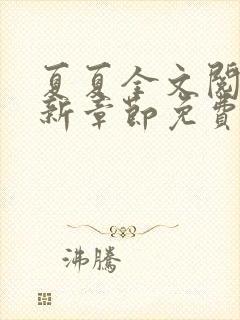 夏夏全文閱
新章節免費
沸騰